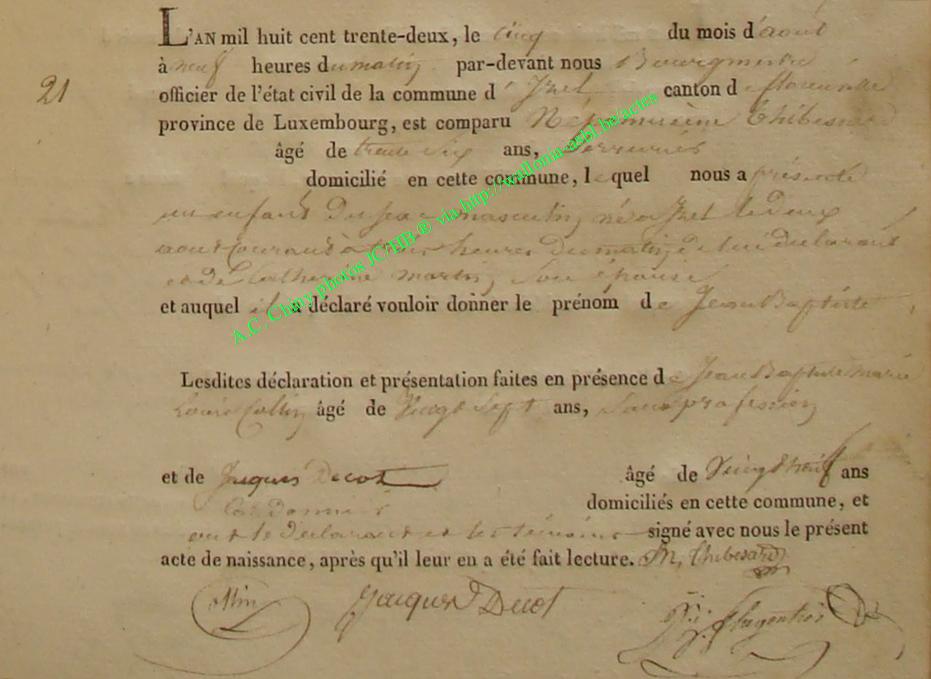 L'AN mil huit cent trente-deux, le cinq du mois d'août
à neuf heures du matin par-devant nous Bourgmestre
21
officier de l'état civil de la commune d'Izel canton de florenville
province de Luxembourg, est comparu Népomucène Thibesard
âgé de trente six ans, Serrurier
domicilié en cette commune, lequel nous a présenté
un enfant du sexe masculin, né a Izel le deux
aout courant à heures du matin, de lui déclarant
et de Catherine Martin, son épouse
et auquel il a déclaré vouloir donner le prénom de Jean Baptiste
Lesdites déclaration et présentation faites en présence de Jean Baptiste Marie
Louis Collin âgé de Vingt Sept ans, Sans profession
et de Jacques Decot âgé de Vingt neuf ans
Cordonnier domiciliés en cette commune, et
ont le déclarant et les témoins signé avec nous le présent
acte de naissance, après qu'il leur en a été fait lecture. M, Thibesard
Collin Jacques Decot
A.C. Chiny photos JC/HB ® via http://wallonia-asbl.be/actes